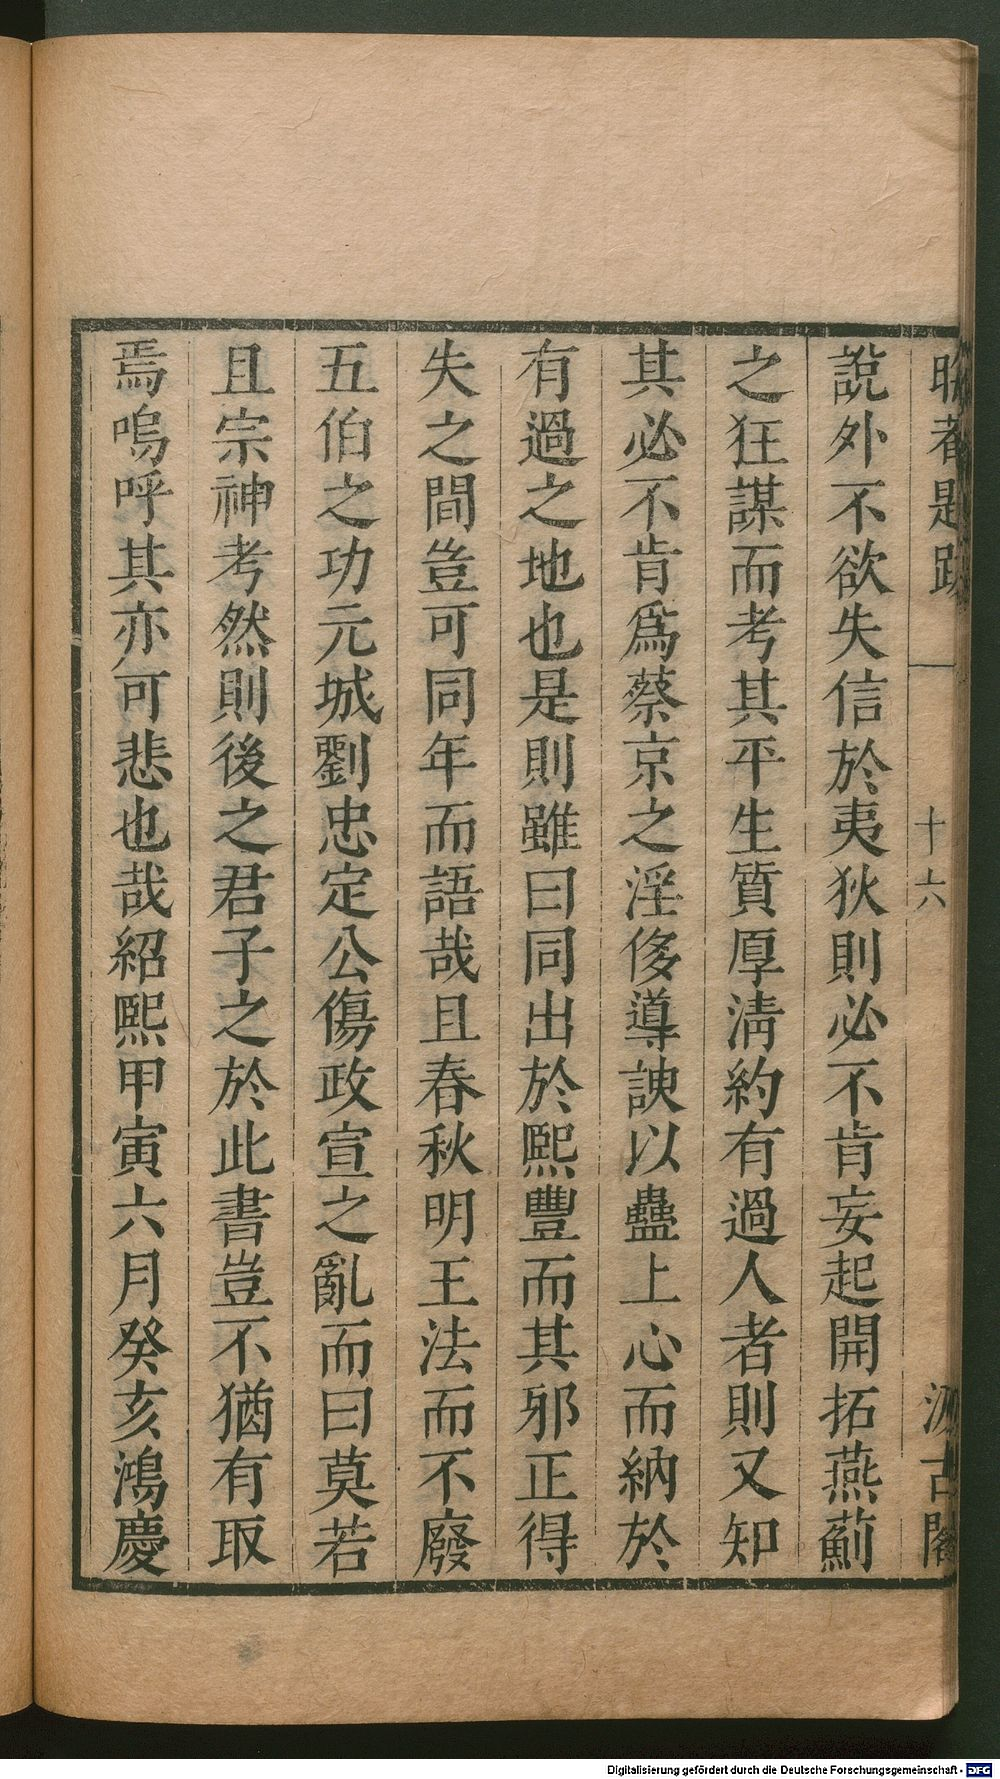 晦菴題跋 十六 汲古閣
說外不欲失信於夷狄則必不肯妄起開拓燕薊
之狂謀而考其平生質厚淸約有過人者則又知
其必不肯爲蔡京之淫侈導諛以蠱上心而納於
有過之地也是則雖曰同出於熙豐而其邪正得
失之間豈可同年而語哉且春秋明王法而不廢
五伯之功元城劉忠定公傷政宣之亂而曰莫若
且宗神考然則後之君子之於此書豈不猶有取
焉嗚呼其亦可悲也哉紹熙甲寅六月癸亥鴻慶
Digitalisierung gefördert durch die Deutsche Forschungsgemeinschaft - DFG